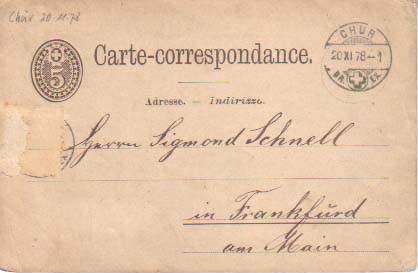 Chur 20.11.78
5
Carte-correspondance.
CHUR
20 XI 78 - 1
BR. EX.
Adresse. – Indirizzo.
Herrn Sigmond Schnell
in Frankfürd
am Main